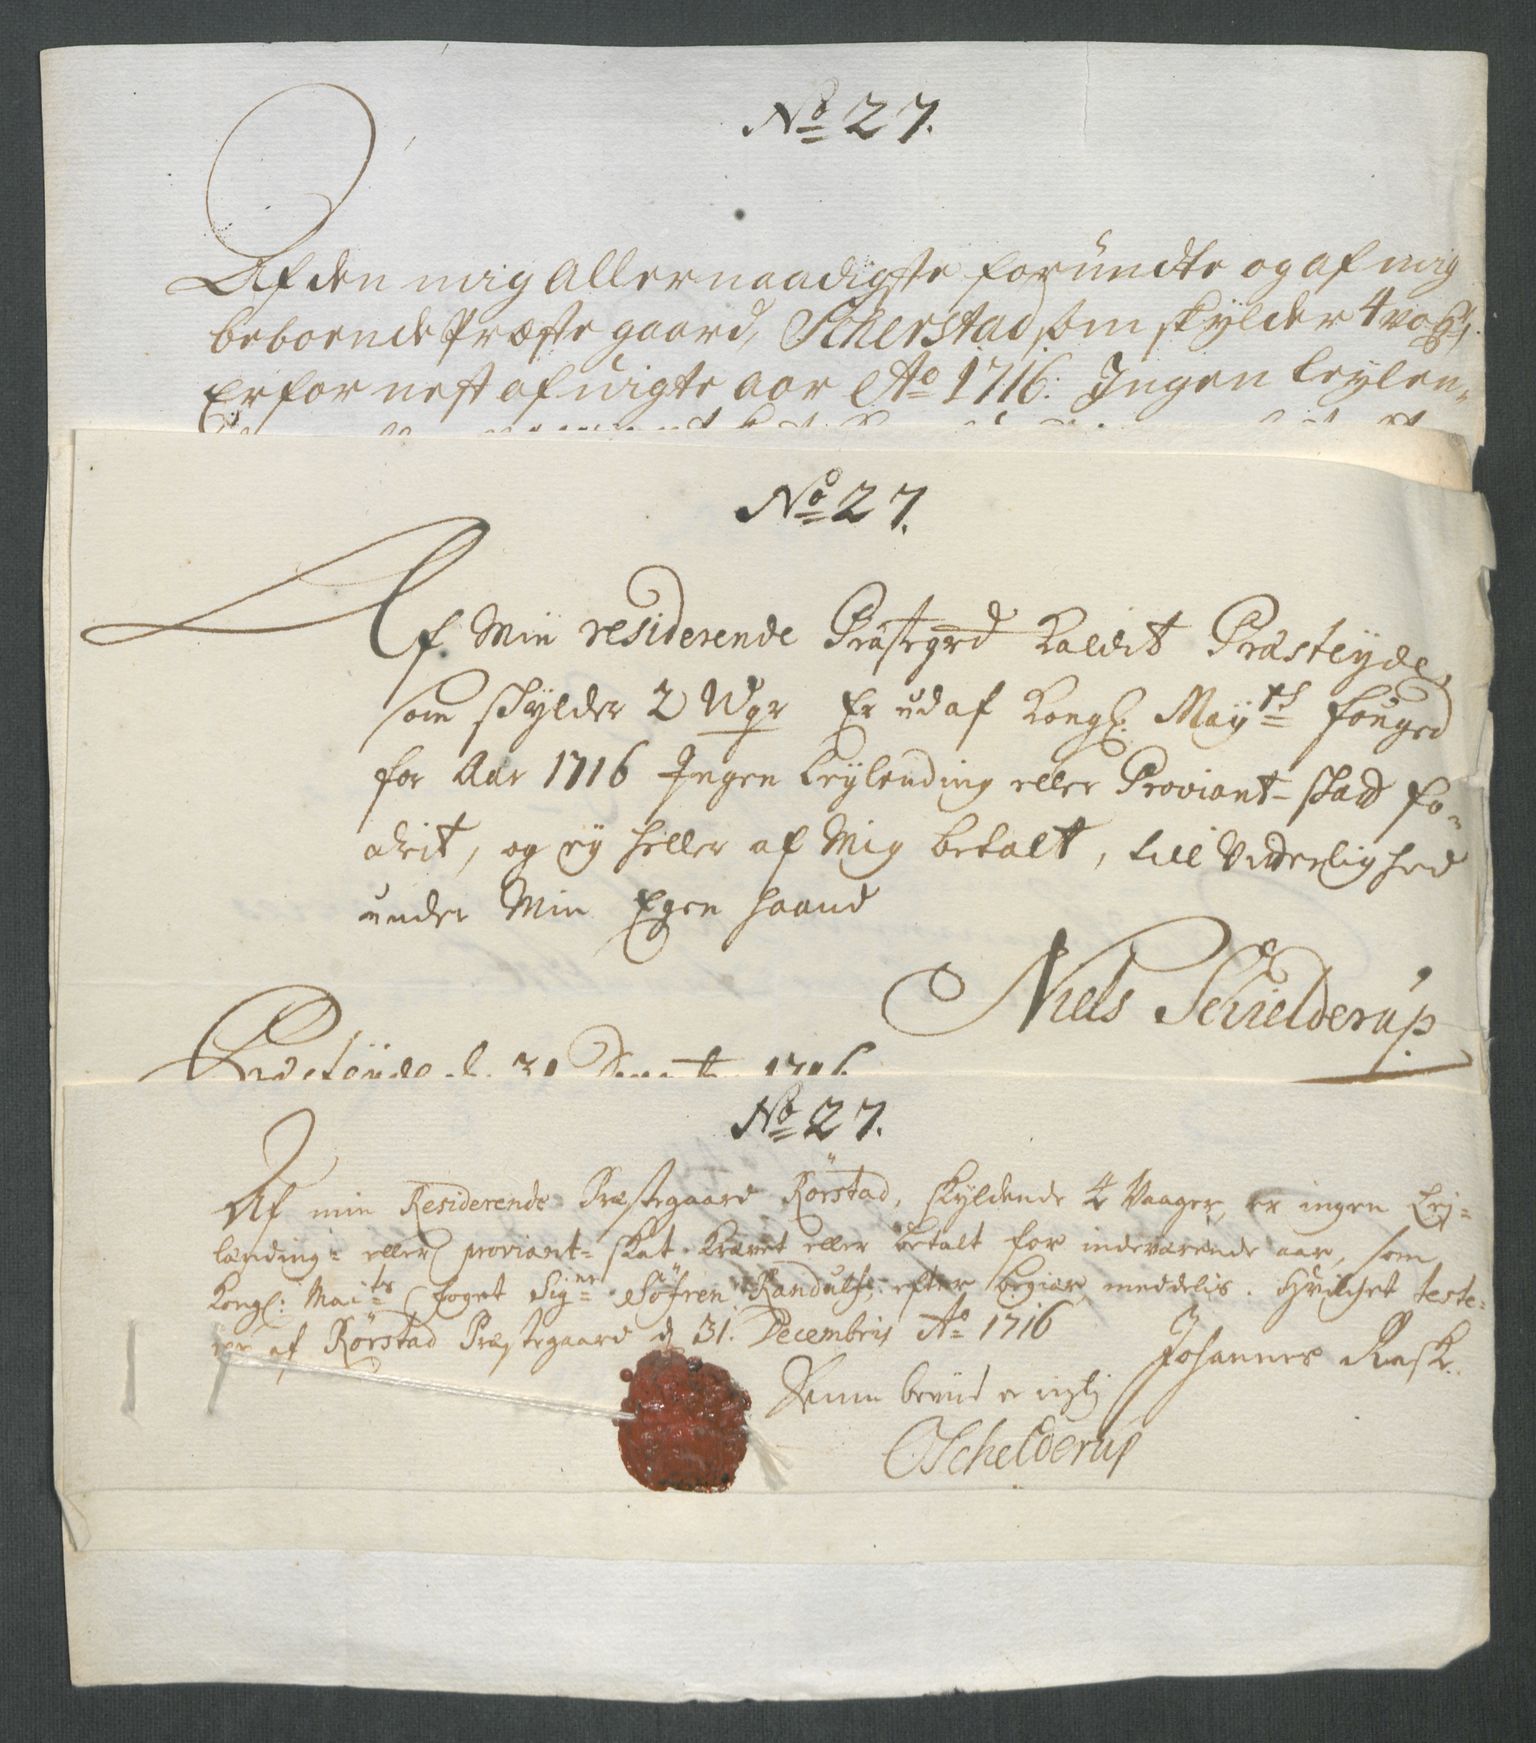 No 27.
Af den mig Allernaadigste forundte og af mig
beboende Præste gaard, Scherstad som skylder 4 vog
Er for nest afvigte aar Ao 1716: Ingen Leylen-
No 27.
Af Min residerende Præstegrd kaldit Præsteyde,
som skylder 2 Wgr Er udaf kongl: Mayts fouged
for Aar 1716 Ingen Leylending eller Proviant-skat fo-
drit, og ey heller af Mig betalt, till Vitterlighed
under Min Egen haand
Niels Schielderup
Præsteyde d. 31 1716
No 27.
Af min Residerende Præstegaard Rörstad, skyldende 4 Vaager, er ingen Ley-
lænding- eller proviant-skat krævet eller betalt for indeværende aar, som
Kongl: Maits foget Signr Söfren Randulf efter begiær meddelis. Hvilchet teste-
rer af Rörstad Præstegaard d 31. Decembris Ao 1716
Johannes Rask.
CSchelderup